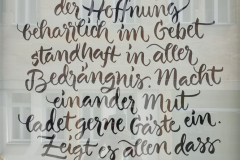 der Hoffnung
beharrlich im Gebet
standhaft in aller
Bedrängnis. Macht
einander Mut
ladet gerne Gäste ein.
Zeigt es allen dass